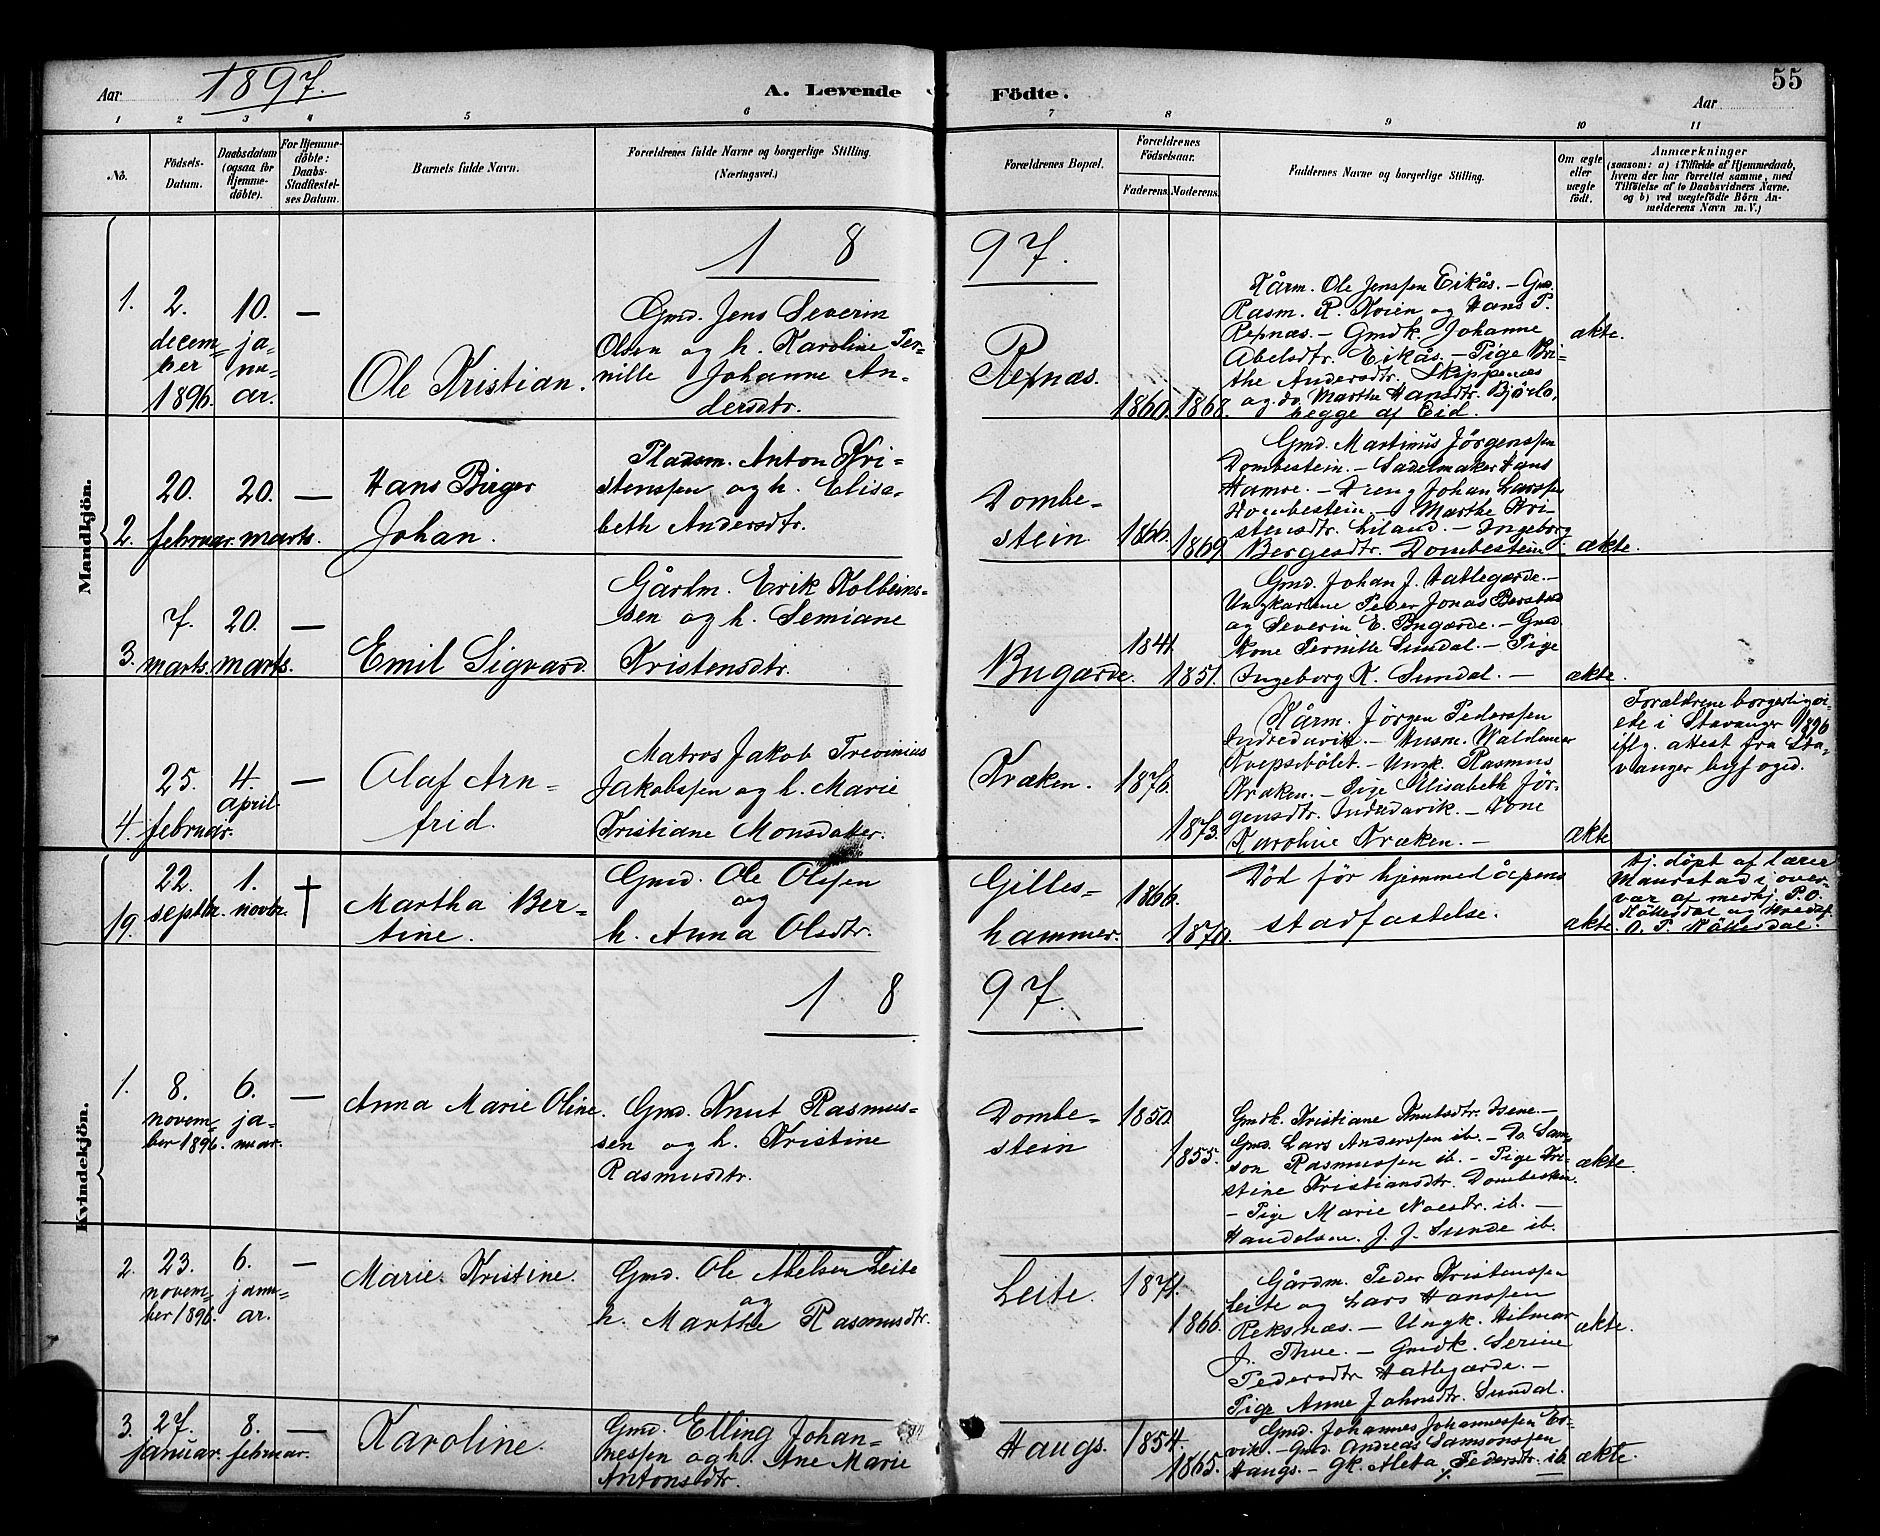 Aar 1897.
A. Levende Födte.
Aar
55
1 2 3 4 5 6 7 8 9 10 11
No.
Födsels-
Datum.
Daabsdatum
(ogsaa for
Hjemme-
döbte).
For Hjemme-
döbte:
Daabs-
Stadfæstel-
ses Datum.
Barnets fulde Navn.
Forældrenes fulde Navne og borgerlige Stilling.
(Næringsvei.)
Forældrenes Bopæl.
Forældrenes
Födselsaar.
Faderens. Moderens.
Faddernes Navne og borgerlige Stilling.
Om ægte
eller
uægte
født.
Anmærkninger
(saasom: a) i Tilfælde af Hjemmedaab,
hvem der har forrettet samme, med
Tilföielse af to Daabsvidners Navne,
og b) ved uægtefödte Börn An-
melderens Navn m. V.)
Mandkjön.
18 97.
1.
2.
decem-
ber
1896.
10.
ja-
nu-
ar.
—
Ole Kristian.
Gmd. Jens Severin
Olsen og h. Karoline Per-
nille Johanne An-
dersdtr.
Rexnæs.
1860. 1868.
Kårm. Ole Jenssen Eikås. - Gmd.
Rasm. R. Koien og Hans P.
Rexnæs. - Gmdk. Johanne
Abelsdtr. Eikås. - Pige Bri-
the Andersdtr. Skippenæs
og do. Marthe Hansdtr. Bjørlo,
begge af Eid.
ækte.
2.
20.
februar.
20.
marts.
—
Hans Birger
Johan.
Pladsm. Anton Kri-
stenssen og h. Elisa-
beth Andersdtr.
Dombe-
stein
1866. 1869
Gmd. Martinus Jörgenssen
Dombestein. - Sadelmaker Hans
Hamre. - Dreng Johan Larssen
Dombestein. - Marthe Kri-
stensdtr. Liland. - Ingeborg
Bergesdtr. Dombestein
ækte.
3.
7.
marts.
20.
marts.
—
Emil Sigvard
Gårdm. Erik Kolbeins-
sen og h. Semiane
Kristensdtr.
Bugærde.
1841. 1851.
Gmd. Johan J. Hatlegærde. -
Ungkarlene Peder Jonas Berstad
og Severin E. Bugærde. - Gmd.
Kone Pernille Sundal. - Pige
Ingeborg K. Sundal. -
ækte.
4.
25.
februar.
4.
april.
—
Olaf Arn-
frid.
Matros Jakob Trevinius
Jakobssen og h. Marie
Kristiane Monsdatter.
Kræken.
1876. 1873.
Kårm. Jørgen Pederssen
Indredavik. - Husm. Waldemar
Kvepsebölet. - Ungk. Rasmus
Kræken. - Pige Elisabeth Jör-
gensdtr. Indredavik. - Kone
Karoline Kræken. -
ækte
Forældrene borgerlig vi-
ede i Stavanger
iflg. attest fra Sta-
vanger byfoged.
19.
22.
septbr.
1.
novbr.
†
Martha Ber-
tine.
Gmd. Ole Olssen
og
h. Anna Olsdtr.
Gilles-
hammer.
1866. 1870.
Död för hjemmedåpens
stadfæstelse.
ækte.
hj. døpt af lærer
Maurstad i over-
vær af medhj. P. O.
Nøttesdal og Kredsf.
O. P. Nøttesdal.
Kvindekjön.
18 97.
1.
8.
novem-
ber 1896.
6.
ja-
nuar.
—
Anna Marie Oline.
Gmd. Knut Rasmus-
sen og h. Kristine
Rasmusdtr.
Dombe-
stein
1850. 1855.
Gmdk. Kristiane Knutsdtr. Isene. -
Gmd. Lars Anderssen ib. - Do. Sam-
son Rasmussen ib. - Pige Kri-
stine Kristiansdtr. Dombestein.
- Pige Marie Noesdtr. ib. -
Handelsm. J. J. Sunde ib.
ækte.
2.
23.
novem-
ber 1896.
6.
janu-
ar.
—
Marie Kristine.
Gmd. Ole Abelsen Leite
og
h. Marthe Rasmusdtr.
Leite.
1871. 1866.
Gårdm. Peder Kristenssen
Leite og Lars Hanssen
Reksnæs. - Ungk. Hilmar
J. Thue. - Gmdk. Serine
Pedersdtr. Hatlegærde. -
Pige Anne Johnsdtr. Sundal.
ækte.
3.
27.
januar.
8.
februar.
—
Karoline.
Gmd. Elling Johan-
nessen og h. Ane Marie
Antonsdtr.
Haugs.
1854. 1865.
Gmd. Johannes Johannessen Er-
vik. - Gmd. Andreas Samsonssen
Haugs. - Gk. Aleta Pedersdtr. ib.
ækte.